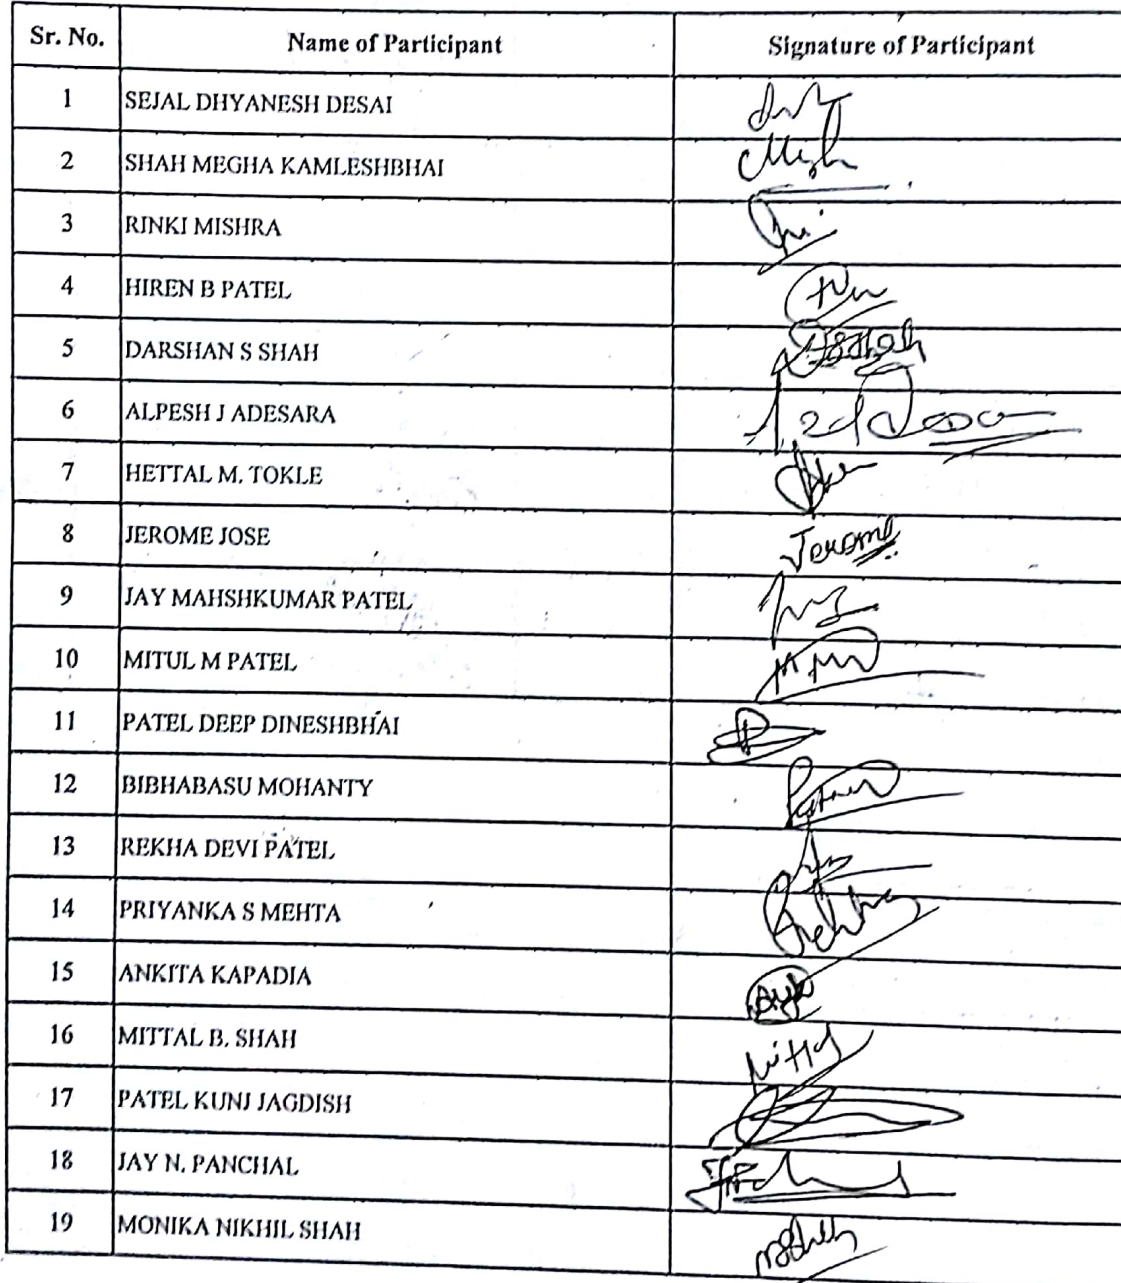 Sr. No. Name of Participant Signature of Participant
1 SEJAL DHYANESH DESAI
2 SHAH MEGHA KAMLESHBHAI Megh
3 RINKI MISHRA
4 HIREN B PATEL
5 DARSHAN S SHAH
6 ALPESH J ADESARA
7 HETTAL M. TOKLE
8 JEROME JOSE Jerome
9 JAY MAHSHKUMAR PATEL
10 MITUL M PATEL
11 PATEL DEEP DINESHBHAI
12 BIBHABASU MOHANTY
13 REKHA DEVI PATEL
14 PRIYANKA S MEHTA
15 ANKITA KAPADIA
16 MITTAL B. SHAH
17 PATEL KUNJ JAGDISH
18 JAY N. PANCHAL
19 MONIKA NIKHIL SHAH